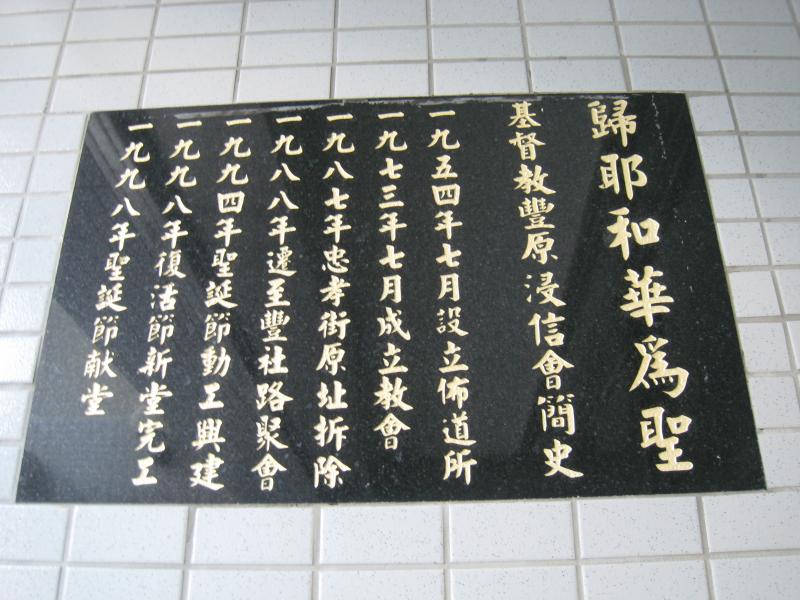 歸耶和華為聖
基督教豐原浸信會簡史
一九五四年七月設立佈道所
一九七三年七月成立教會
一九八七年忠孝街原址拆除
一九八八年遷至豐社路聚會
一九九四年聖誕節動工興建
一九九八年復活節新堂完工
一九九八年聖誕節献堂